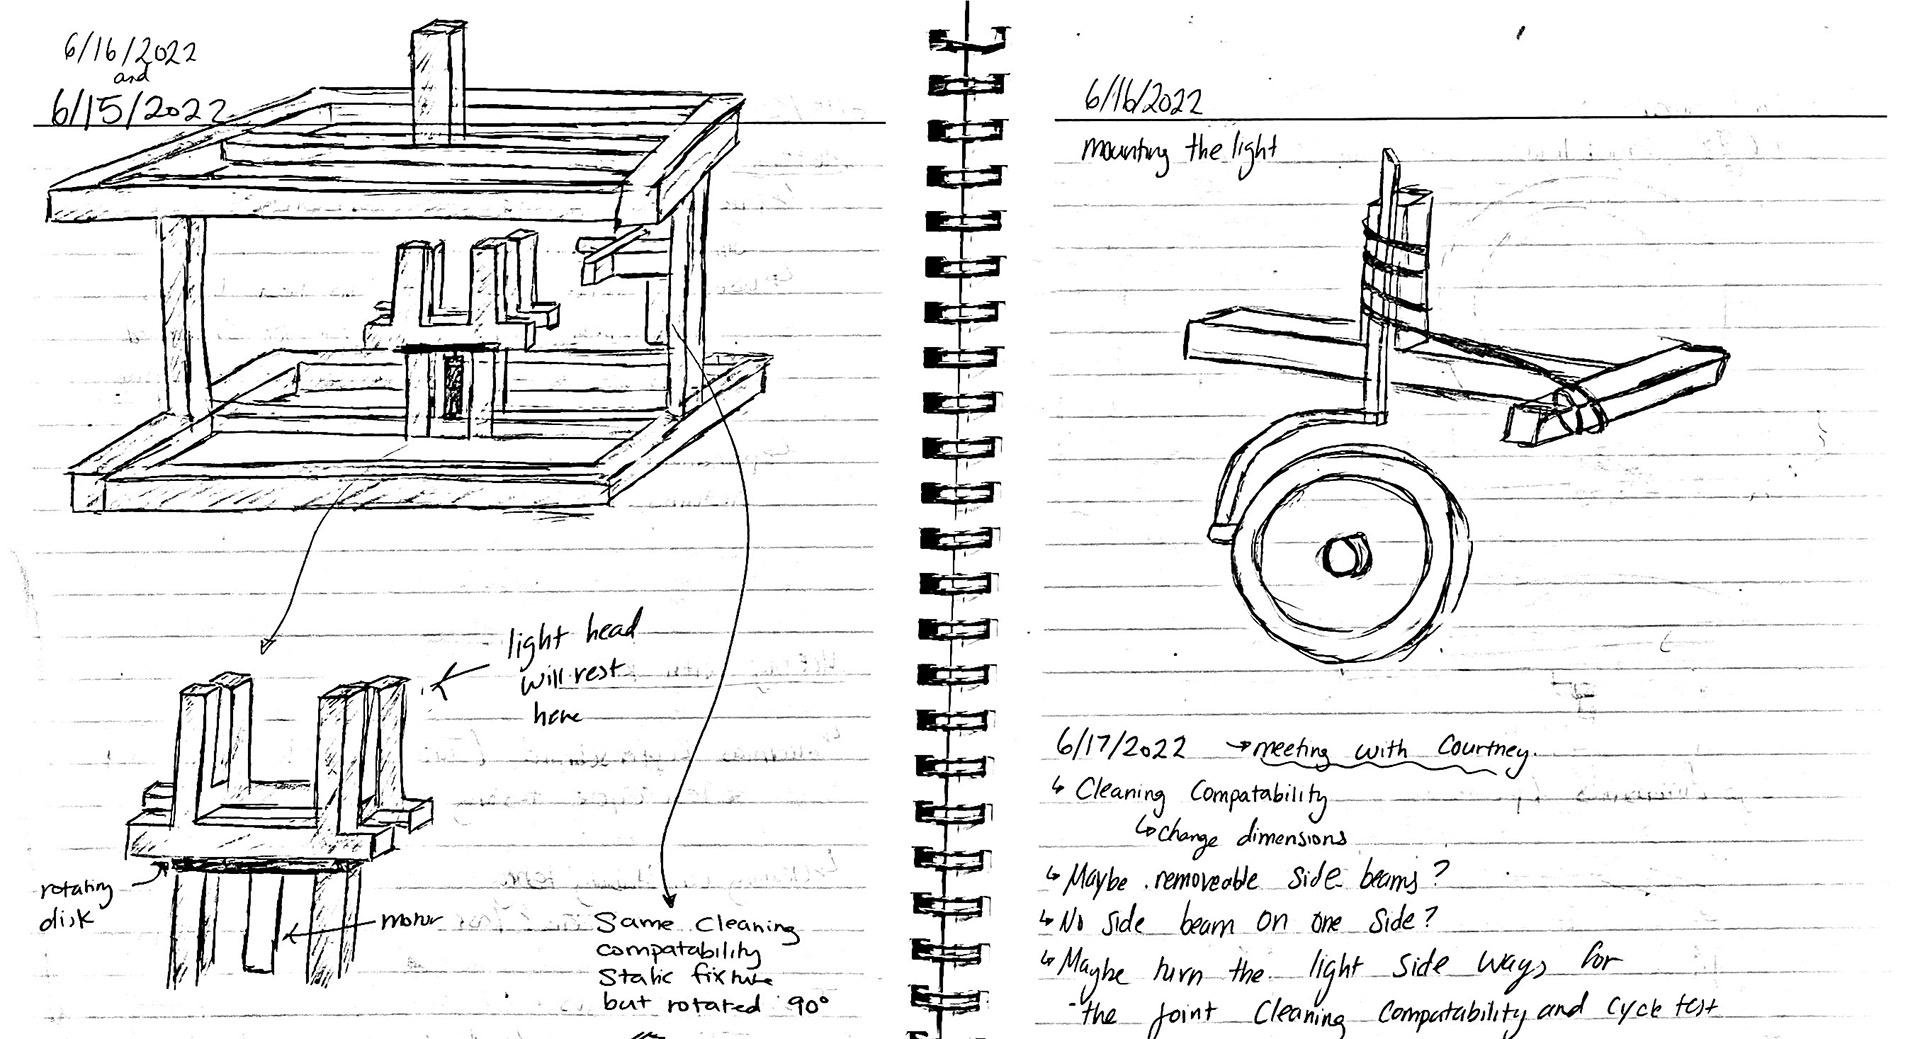 6/16/2022
and
6/15/2022
light head
will rest
here
rotating
disk
motor
Same Cleaning
compatability
Static fixture
but rotated 90°
6/16/2022
mounting the light
6/17/2022 → meeting with Courtney.
↳ Cleaning Compatability
↳ change dimensions
↳ Maybe removeable side beams?
↳ No side beam on one side?
↳ Maybe turn the light side ways for
the joint Cleaning Compatability and cycle test